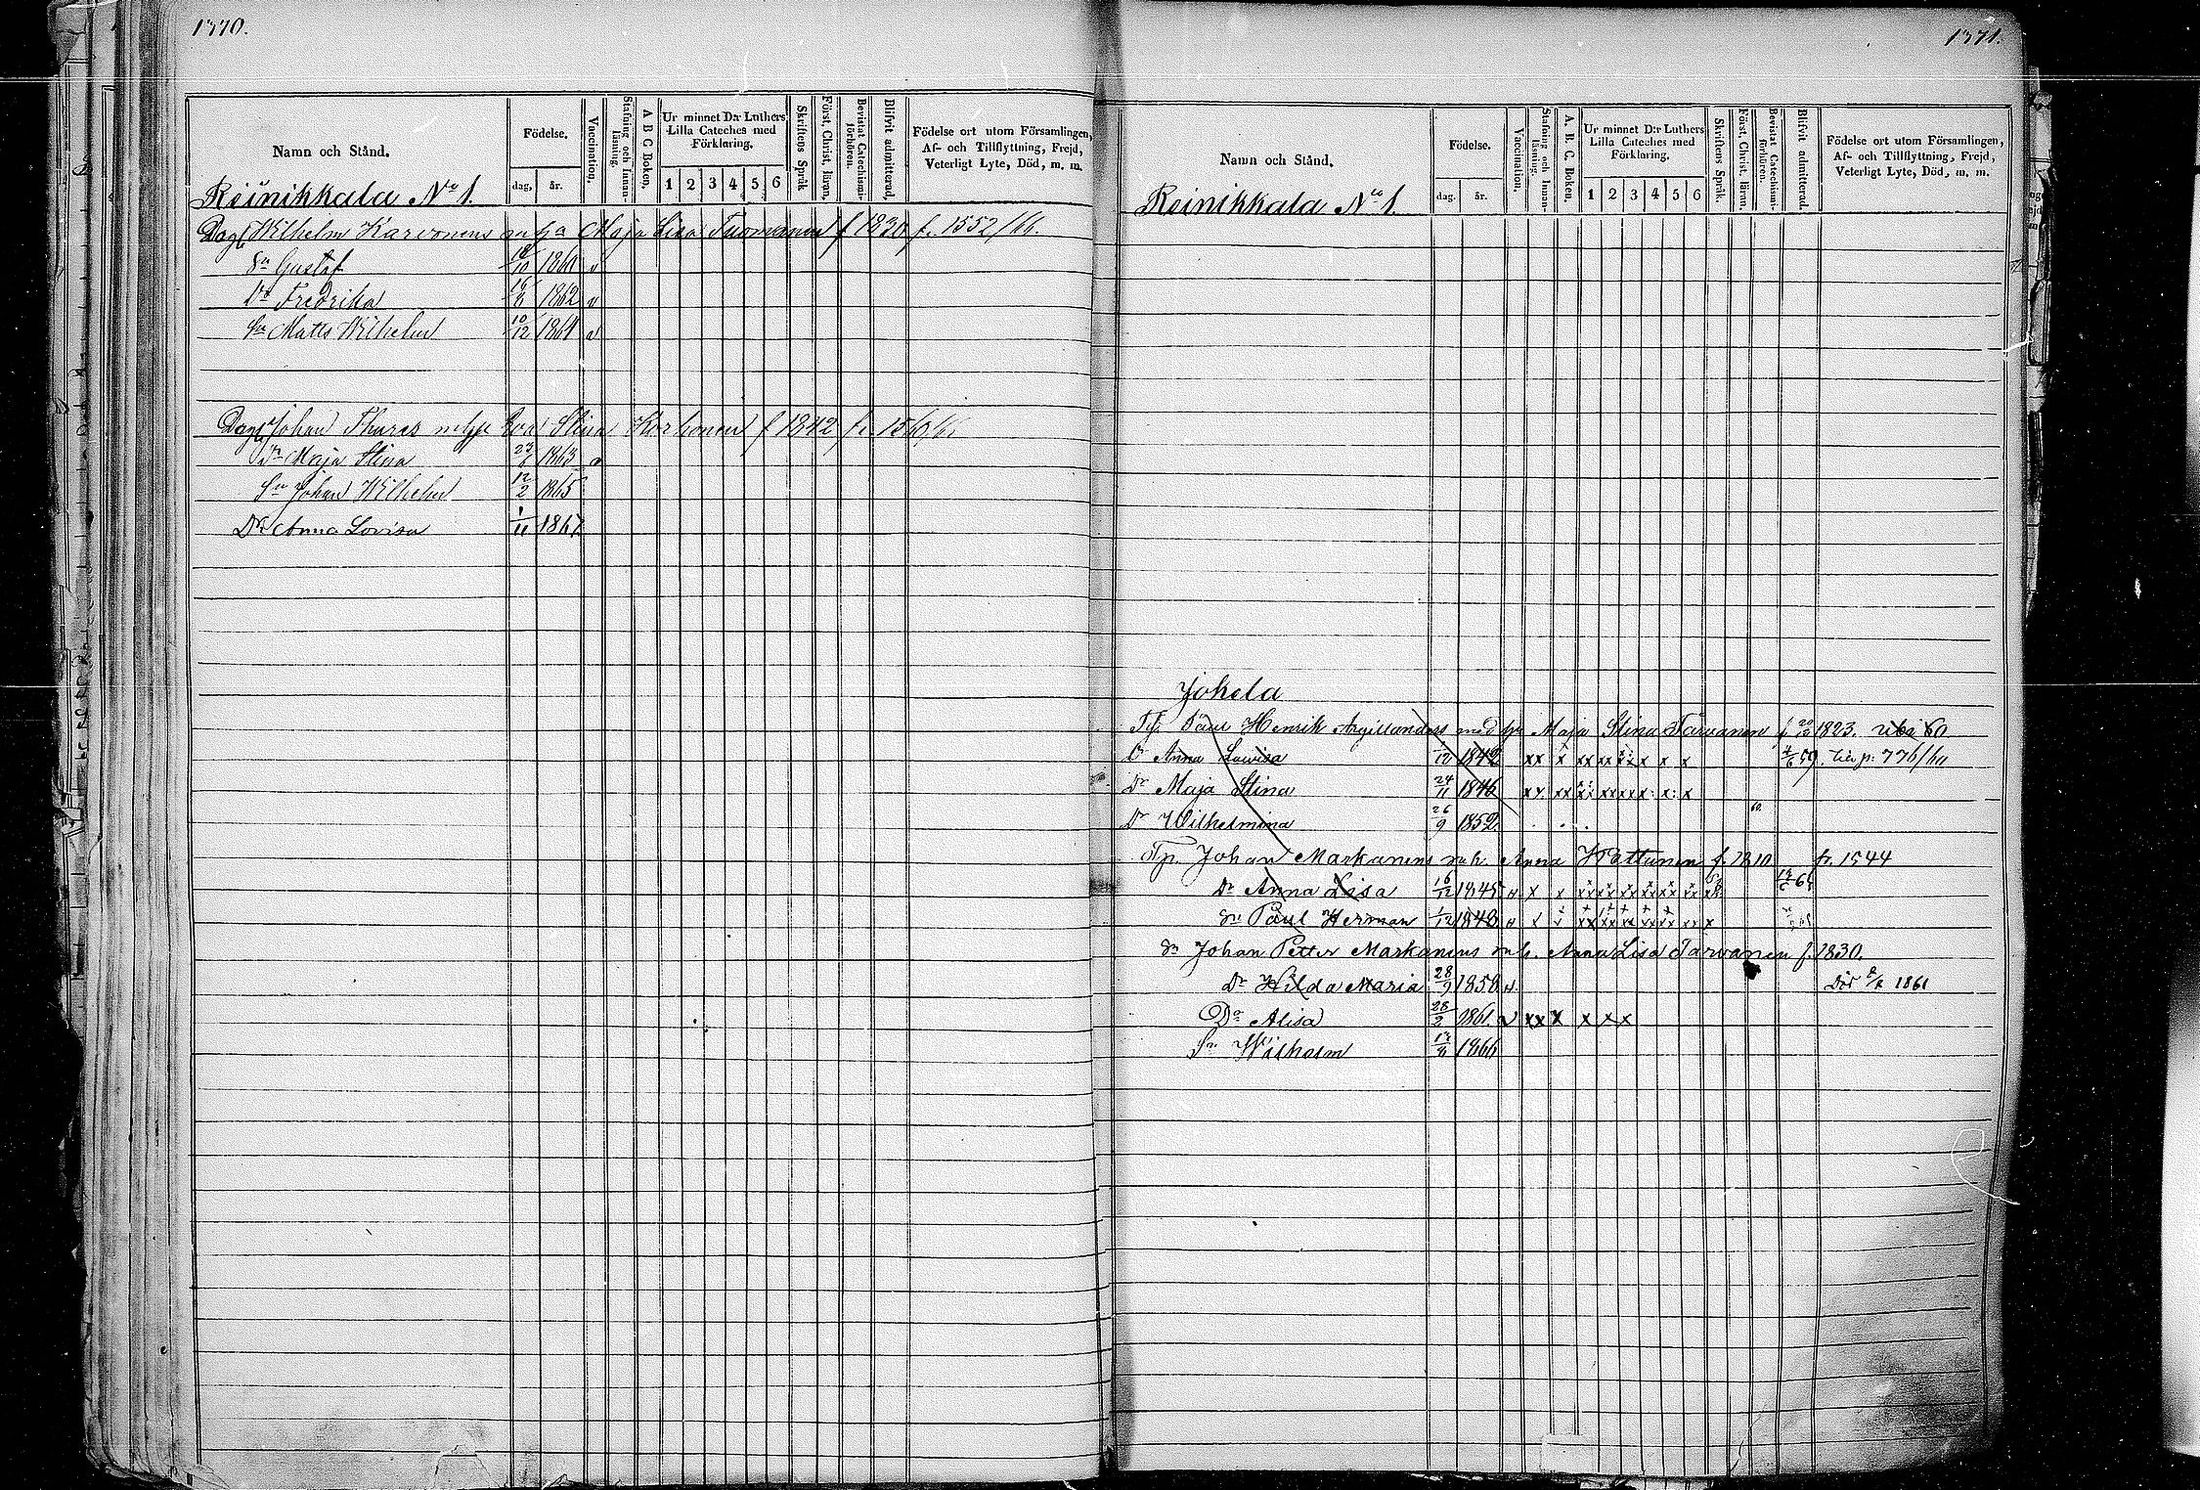 1370.
Namn och Stånd.
Födelse.
dag, år.
Vaccination.
Stafning och Innan-läsning.
A B C Boken.
Ur minnet D:r Luthers Lilla Cateches med Förklaring.
1 2 3 4 5 6
Skriftens Språk
Först. Christ. läran.
Bevistat Catechismi-förhören.
Blifvit admitterad.
Födelse ort utom Församlingen, Af- och Tillflyttning, Frejd, Veterligt Lyte, Död, m. m.
Reinikkala No 1.
Dagk Wilhelm Karvonens Maja Lisa Tuomanen f 1830 fr. 1552/66.
Sn Gustaf 10 1860 v
Dr Fredrika 16/8 1862 v
Sn Matts Wilhelm 10/12 1864 v
Dagk Johan Thures Eva Stina Korhonen f 1842 fr.
Dr Maja Stina 1863
Sn Johan Wilhelm 12/2 1865
Dr Anna Lovisa 1/11 1867
1371.
Namn och Stånd.
Födelse.
dag. år.
Vaccination.
Stafning och Innan-läsning.
A. B. C. Boken.
Ur minnet D:r Luthers Lilla Cateches med Förklaring.
1 2 3 4 5 6
Skriftens Språk.
Först. Christ. läran.
Bevistat Catechismi-förhören.
Blifvit admitterad.
Födelse ort utom Församlingen, Af- och Tillflyttning, Frejd, Veterligt Lyte, Död, m. m.
Reinikkala No 1.
Jokela
Paul Henrik Argillanders med Maja Stina Tarvanen f 20/10 1823. 60
Dr Anna Lowisa /12 1842 xx x xx xx x x x x 4/6 59. p: 776/60
Dr Maja Stina 24/11 1846 xx xx x: x: x
Dr Wilhelmina 26/9 1852 60.
Johan Markanens enk. Anna Wattunen f. 1810 fr. 1544
Dr Anna Lisa 16/12 1845 x x
Sn Paul Herman 1/12 1848 x x
Sn Johan Petter Markanens Anna Lisa Tarvanen f. 1830.
Dr Hilda Maria 28/9 1858 Död 1861
Dr Alisa 28/2 1861. v xx x x x x
Sn Wilhelm 13/8 1866